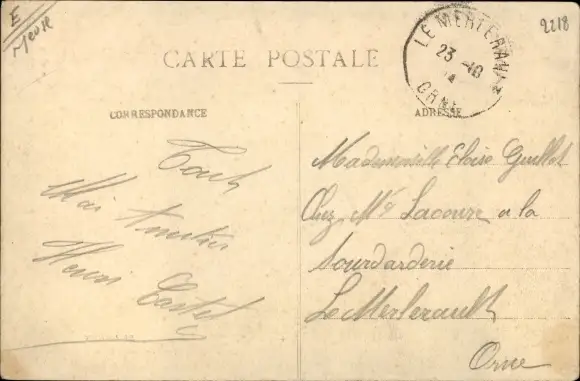 E
Meuse
2218
CARTE POSTALE
LE MERLERAULT
23 -10
14
ORNE
CORRESPONDANCE
ADRESSE
Tout
Mai Amitiés
Henri Castel
Mademoiselle Eloise Guillot
Chez Mr Lacouze a la
Tourdarderie
Le Merlerault
Orne